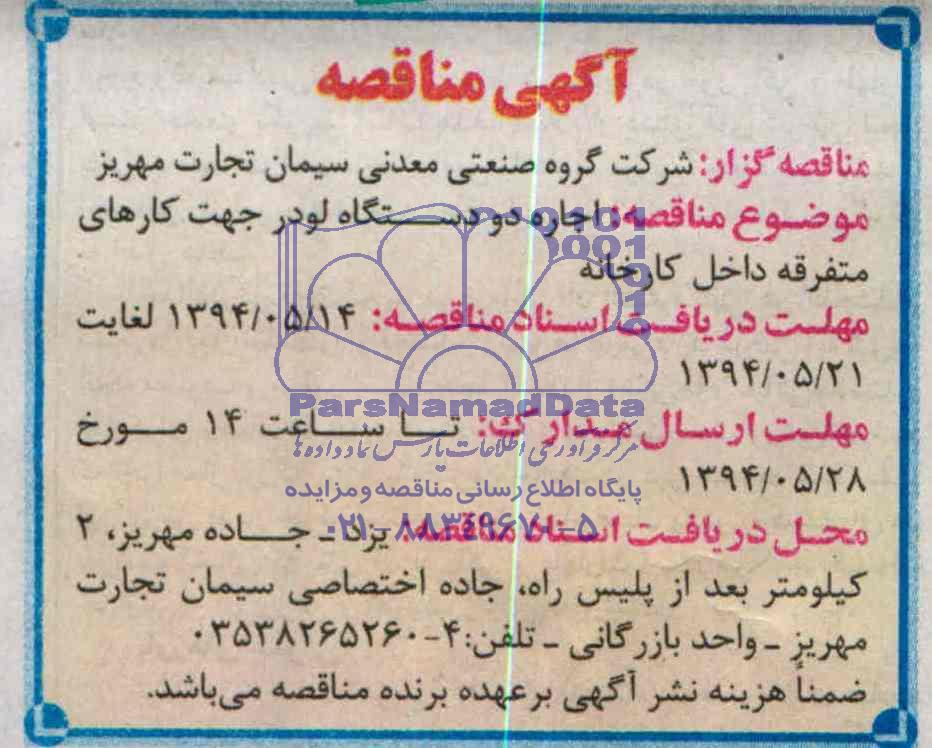 آگهی مناقصه
مناقصه گزار: شرکت گروه صنعتی معدنی سیمان تجارت مهریز
موضوع مناقصه: اجاره دو دستگاه لودر جهت کارهای
متفرقه داخل کارخانه
مهلت دریافت اسناد مناقصه: ۱۳۹۴/۰۵/۱۴ لغایت
۱۳۹۴/۰۵/۲۱
ParsNamadData
مهلت ارسال مدارک: تا ساعت ۱۴ مورخ
مرکز فرآوری اطلاعات پارس نماد داده ها
۱۳۹۴/۰۵/۲۸
پایگاه اطلاع رسانی مناقصه و مزایده
محل دریافت اسناد مناقصه: یزد ـ جاده مهریز، ۲
۰۲۱-۸۸۳۴۹۶۷۰-۵
کیلومتر بعد از پلیس راه، جاده اختصاصی سیمان تجارت
مهریز ـ واحد بازرگانی ـ تلفن:۴-۰۳۵۳۸۲۶۵۲۶۰
ضمناً هزینه نشر آگهی برعهده برنده مناقصه می‌باشد.